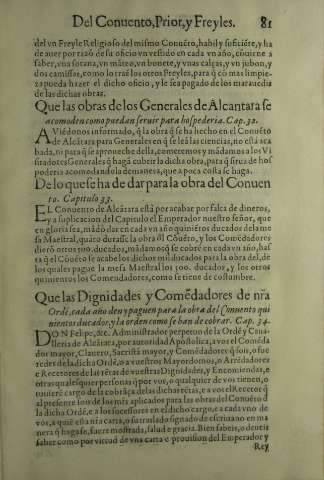 Del Conuento, Prior, y Freyles. 81
del vn Freyle Religioso del mismo Conuẽto, habil y suficiẽte, y ha
de auer por razõ de su oficio vn vestido en cada vn año, cõuiene a
saber, vna sotana, vn mãteo, vn bonete, y vnas calças, vn jubon, y
dos camissas, como lo traẽ los otros Freyles, para q̃ cõ mas limpie-
za pueda hazer el dicho oficio, y le sea pagado de los marauedis
de las dichas obras.
Que las obras de los Generales de Alcantara se
acomoden como puedan seruir para hospederia. Cap. 32.
AViédonos informado, q̃ la obra q̃ se ha hecho en el Conuẽto
de Alcãtara para Generales en q̃ se leã las ciencias, no está aca
bada, ni para q̃ se aproueche della, cometemos y mãdamos a los Vi
sitadores Generales q̃ hagã cubrir la dicha obra, para q̃ sirua de hos
poderia acomodandola de manera, que a poca costa se haga.
De lo que se ha de dar para la obra del Conuen
to. Capitulo 33.
EL Conuento de Alcãtara está por acabar por falta de dineros,
y a suplicacion del Capitulo el Emperador nuestro señor, que
en gloria sea, mãdó dar en cada vn año quiniẽtos ducados de la me
sa Maestral, quãto durasse la obra d̃l Cõuẽto, y los Comẽdadores
dierõ otros 500 ducados, mãdamos se cobrẽ en cada vn año, has
ta q̃ el Cõuẽto se acabe los dichos mil ducados para la obra del, de
los quales pague la mesa Maestral los 500. ducados, y los otros
quinientos los Comendadores, como se tiene de costumbre.
Que las Dignidades y Comẽdadores de nr̃a
Ordẽ, cada año den y paguen para la obra del Conuento qui
nientos ducados, y la orden como se han de cobrar. Cap. 34.
DON Felipe, &c. Administrador perpetuo de la Ordẽ y Caua-
lleria de Alcãtara, por autoridad Apostolica, a vos el Comẽda
dor mayor, Clauero, Sacristã mayor, y Comẽdadores q̃ sois, o fue
redes de la dicha Ordẽ, o a vuestros Mayordomos, o Arrẽdadores
e Receptores de las rẽtas de vuestras Dignidades, y Encomiendas, e
otras qualesquier personas q̃ por vos, o qualquier de vos tienen, o
tuuierẽ cargo de la cobrãça de las dichas rẽtas, e a vos el Receptor q̃
al presente sois de los mrs aplicados para las obras del Conuẽto d̃
la dicha Ordẽ, e a los sucessores en el dicho cargo, e a cada vno de
vos, a quiẽ esta nr̃a carta, o su traslado signado de escriuano en ma
nera q̃ haga fe, fuere mostrada, salud e gracia. Bien sabeis, o deueis
saber como por virtud de vna carta e prouision del Emperador y
Rey